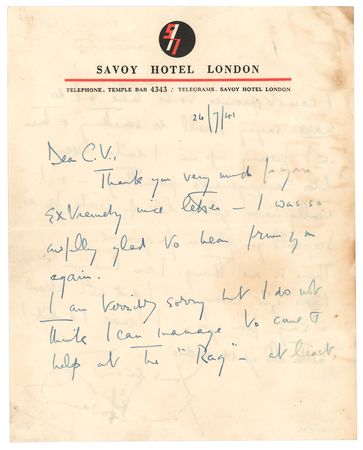 SAVOY HOTEL LONDON
TELEPHONE, TEMPLE BAR 4343 : TELEGRAMS. SAVOY HOTEL LONDON
26/7/41
Dear C.V.,
Thank you very much for your
extremely nice letter – I was so
awfully glad to hear from you
again.
I am terribly sorry but I do not
think I can manage to come &
help at the "Rag" – at least,